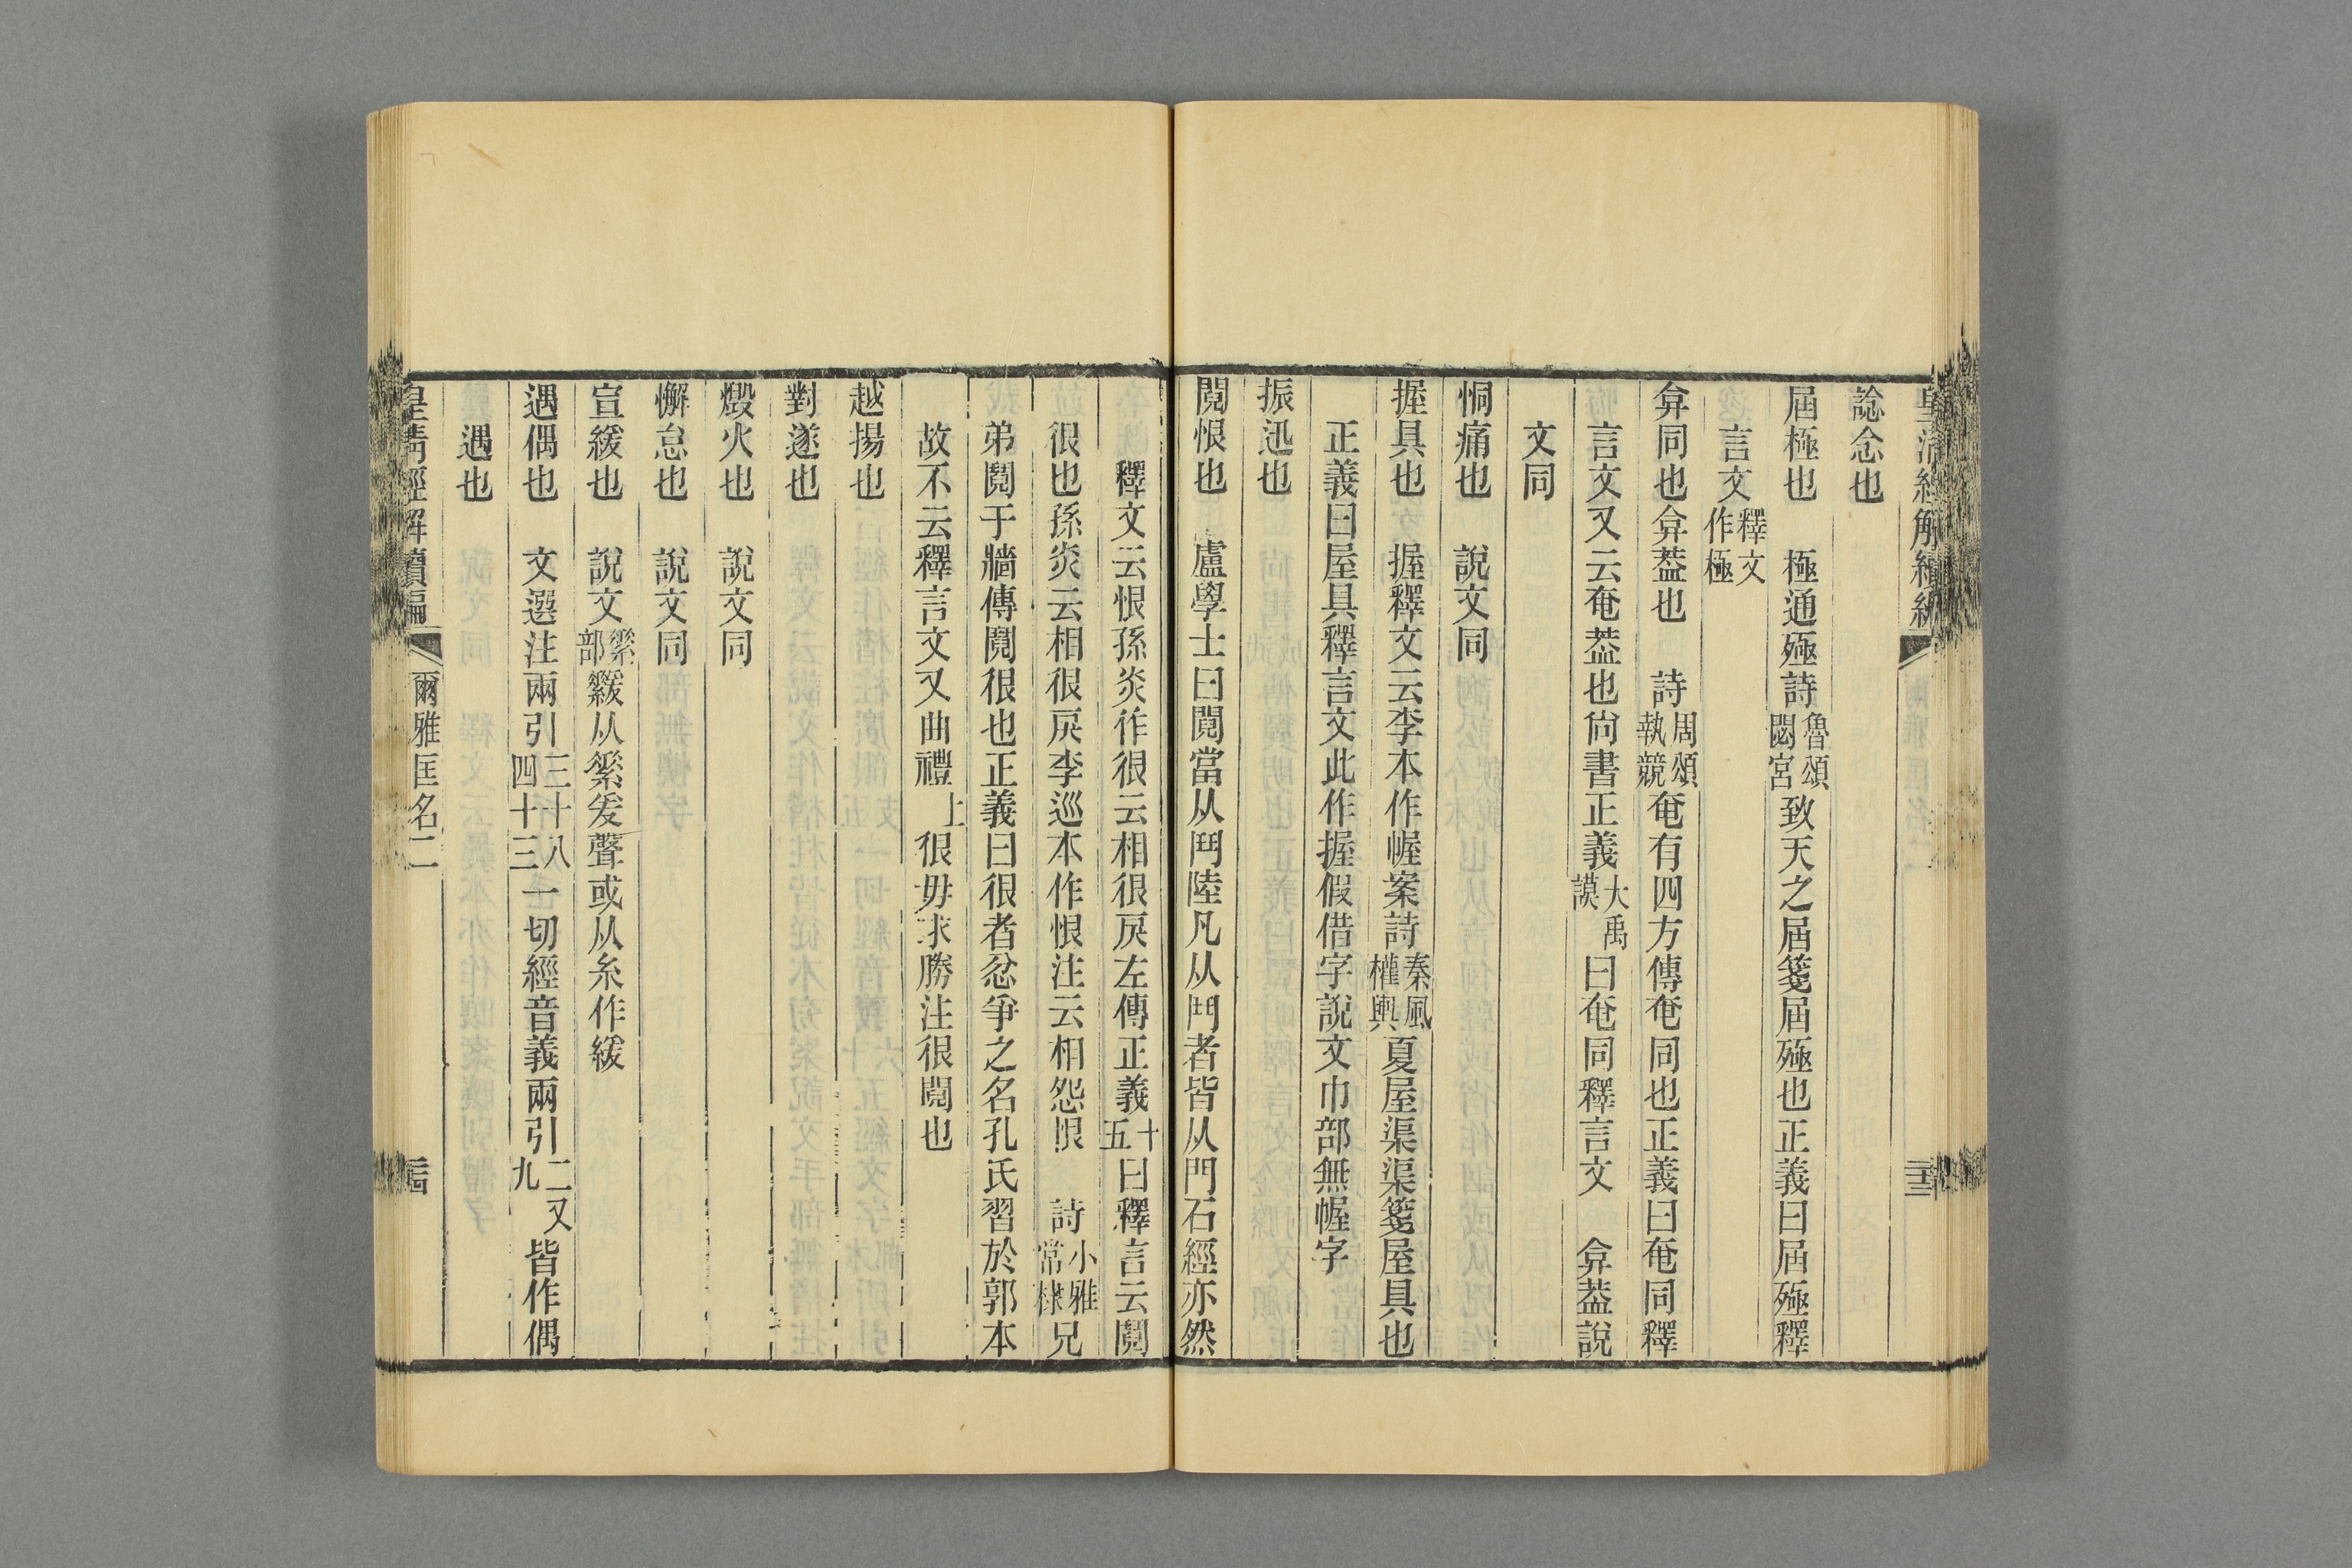 諗念也
屆極也　極通殛詩魯頌閟宮致天之屆箋屆殛也正義曰屆殛釋
言文釋文作極
弇同也弇葢也　詩周頌執競奄有四方傳奄同也正義曰奄同釋
言文又云奄葢也尙書正義大禹謨曰奄同釋言文　弇葢說
文同
恫痛也　說文同
握具也　握釋文云李本作幄案詩秦風權輿夏屋渠渠箋屋具也
正義曰屋具釋言文此作握假借字說文巾部無幄字
振迅也
鬩恨也　盧學士曰鬩當从鬥陸凡从鬥者皆从門石經亦然
釋文云恨孫炎作很云相很戾左傳正義十五曰釋言云鬩
很也孫炎云相很戾李巡本作恨注云相怨恨　詩小雅常棣兄
弟鬩于牆傳鬩很也正義曰很者忿爭之名孔氏習於郭本
故不云釋言文又曲禮上很毋求勝注很鬩也
越揚也
對遂也
燬火也　說文同
懈怠也　說文同
宣緩也　說文素部䋽从素爰聲或从糸作緩
遇偶也　文選注兩引三十八四十三一切經音義兩引二又九皆作偶
遇也
皇淸經解續編　爾雅匡名二